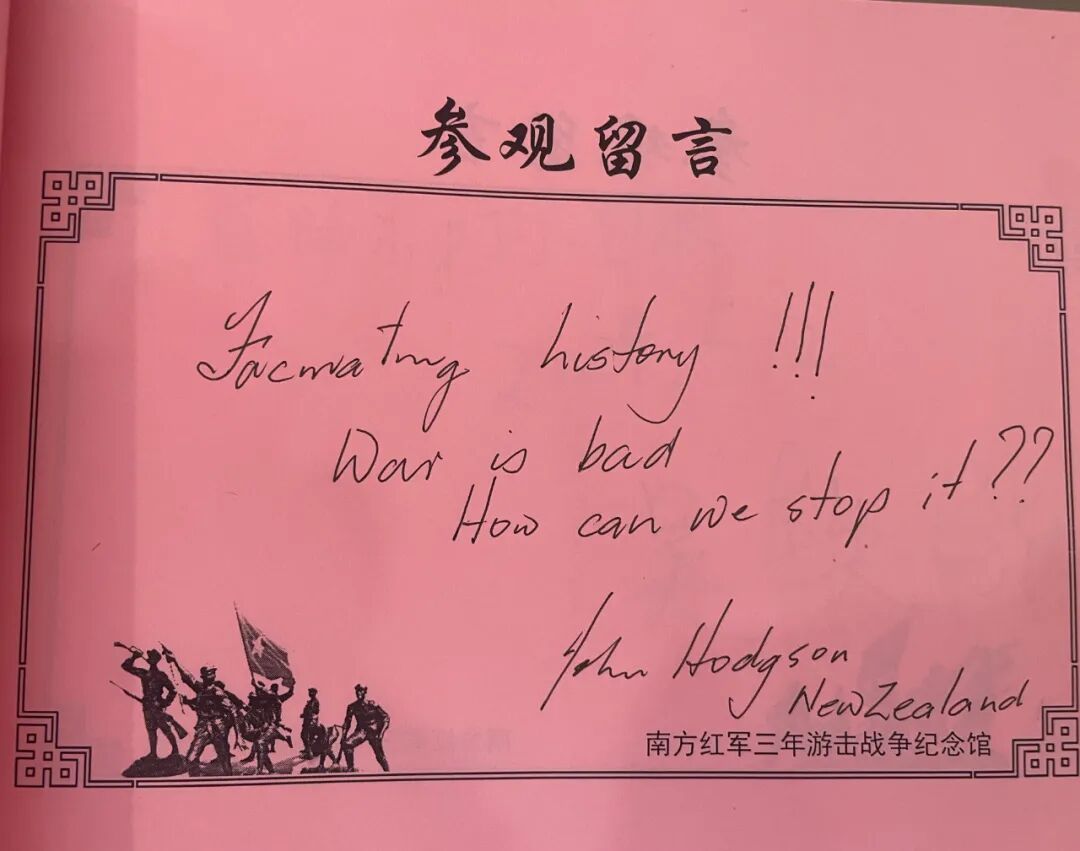 参观留言
Facinating history !!!
War is bad
How can we stop it??
John Hodgson
New Zealand
南方红军三年游击战争纪念馆